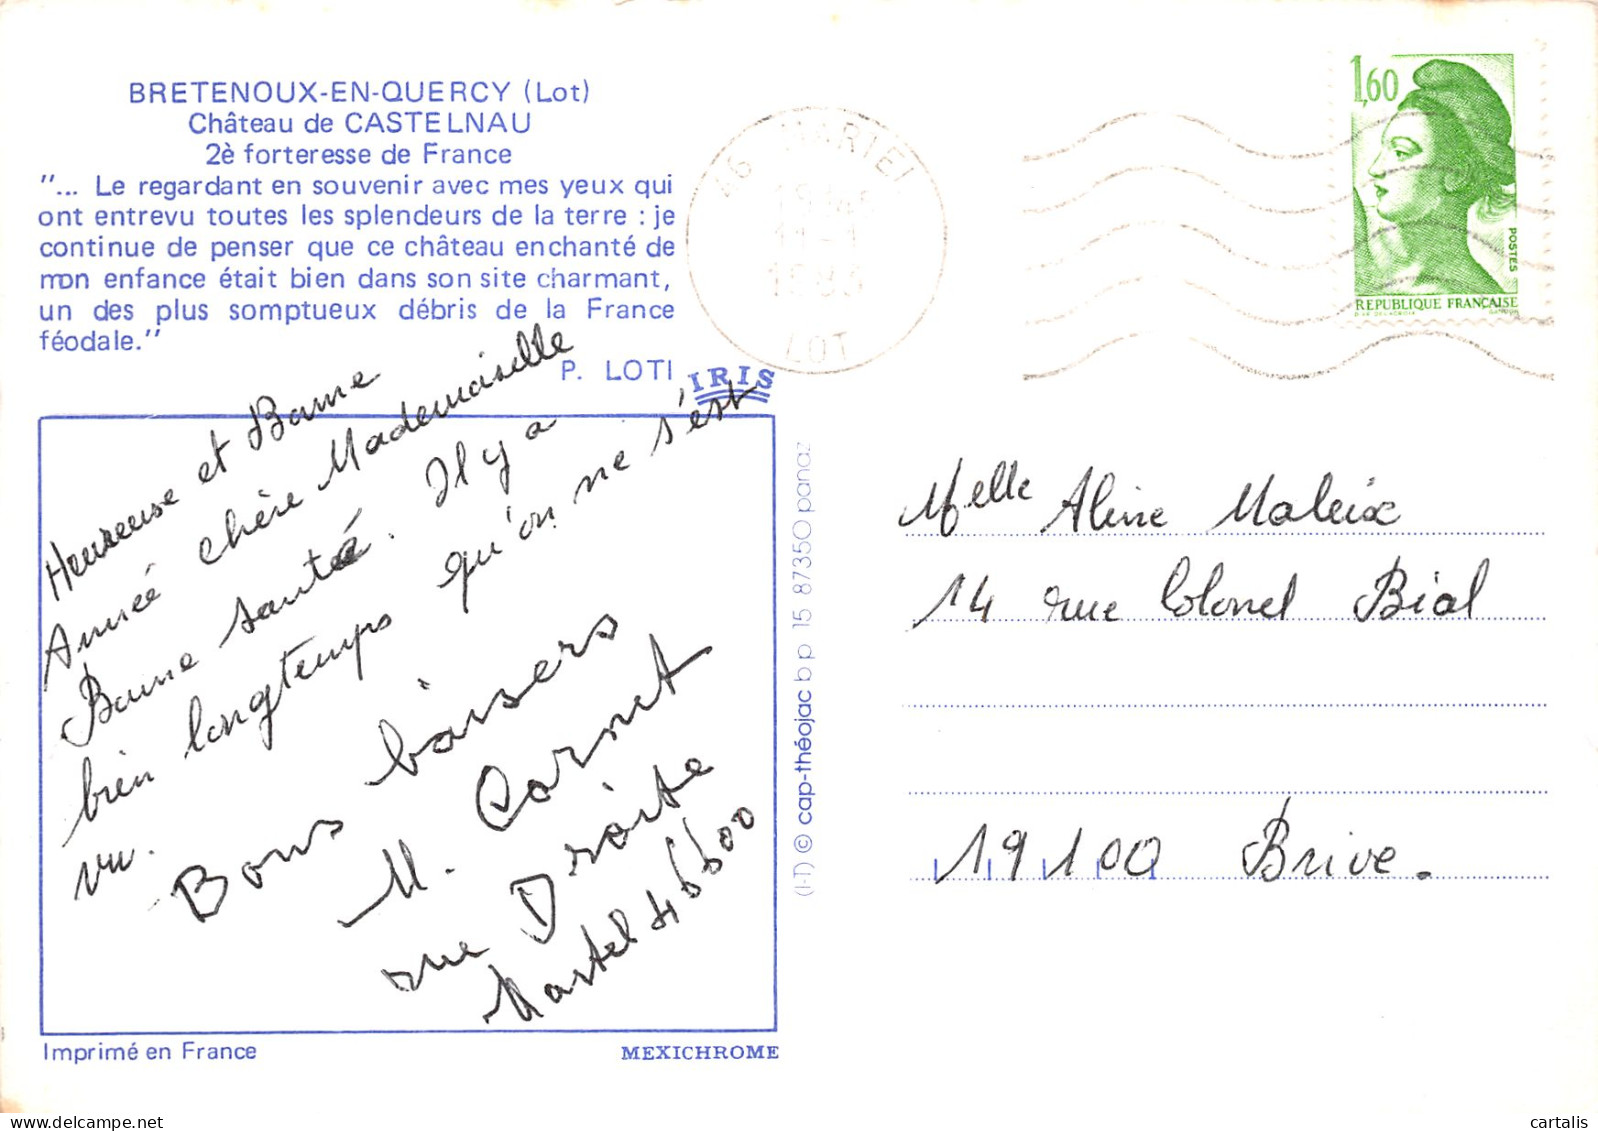 BRETENOUX-EN-QUERCY (Lot)
Château de CASTELNAU
2è forteresse de France
"... Le regardant en souvenir avec mes yeux qui
ont entrevu toutes les splendeurs de la terre : je
continue de penser que ce château enchanté de
mon enfance était bien dans son site charmant,
un des plus somptueux débris de la France
féodale."
P. LOTI
IRIS
Heureuse et Bonne
Année chère Mademoiselle
Bonne santé. Il y a
bien longtemps qu'on ne s'est
vu.
Bons baisers
M. Cornet
rue Droite
Martel 46600
Imprimé en France
MEXICHROME
(I-T) © cap-théojac b p 15 87350 panaz
46 MARTEL
11-1
LOT
1,60
POSTES
REPUBLIQUE FRANÇAISE
Melle Aline Maleix
14 rue Colonel Bial
19100 Brive.
cartalis